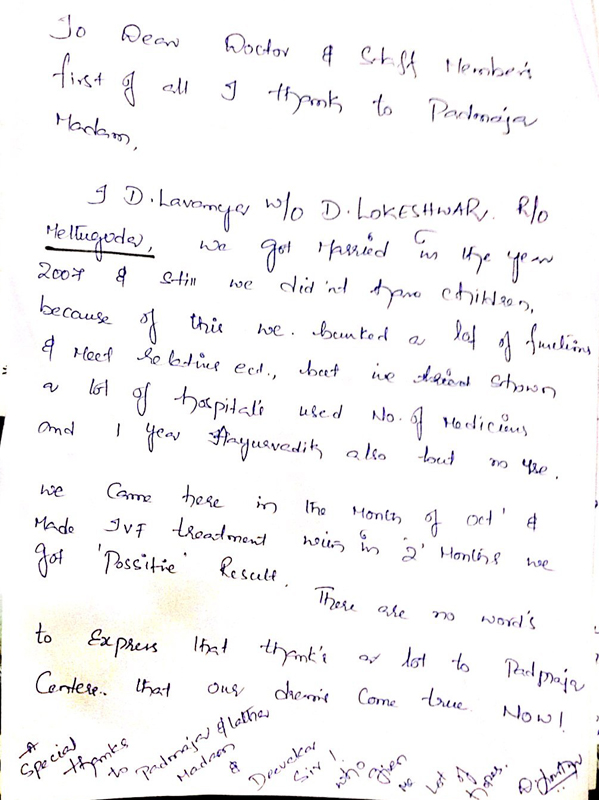 To Dear Doctor & Staff Member's
first of all I thank to Padmaja
Madam,
I D. Lavanya W/o D. LOKESHWAR. R/o
Mettuguda, we got Married in the year
2007 & still we did'nt have children,
because of this we bunked a lot of functions
& Meet relative ect., but we shown
a lot of hospital's used No. of Medicins
and 1 year Aayurvedik also but no use.
We Came here in the Month of oct' &
Made IVF treatment in '2' Months we
got 'Possitive' Result. There are no word's
to Express that thank's a lot to Padmaja
Centere.. that our dreams Come true. Now!
Special thanks to Padmaja & Latha Madam & Devakar Sir! who given me lot of hopes.